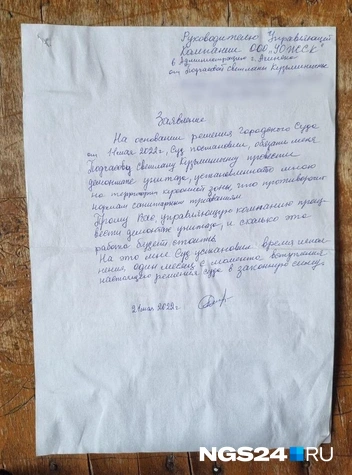 Руководителю Управляющей
Компании ООО „УЮЖСК"
в Администрацию г. Ачинска
от Подчасовой Светланы Кузьминичны
Заявление
На основании решения Городского Суда
от 11 мая 2022 г, Суд постановил, обязать меня
Светлану Кузьминичну произвести
демонтаж унитаза, установленного мною
на территории кухонной зоны, что противоречит
нормам санитарным требованиям
Прошу Вас, управляющую компанию произ-
вести демонтаж унитаза, и сколько это
работа будет стоить.
На это мне Суд установил время испол-
нения один месяц с момента вступления
настоящего решения суда в законную силу.
21 мая 2022 г.
NGS24.RU